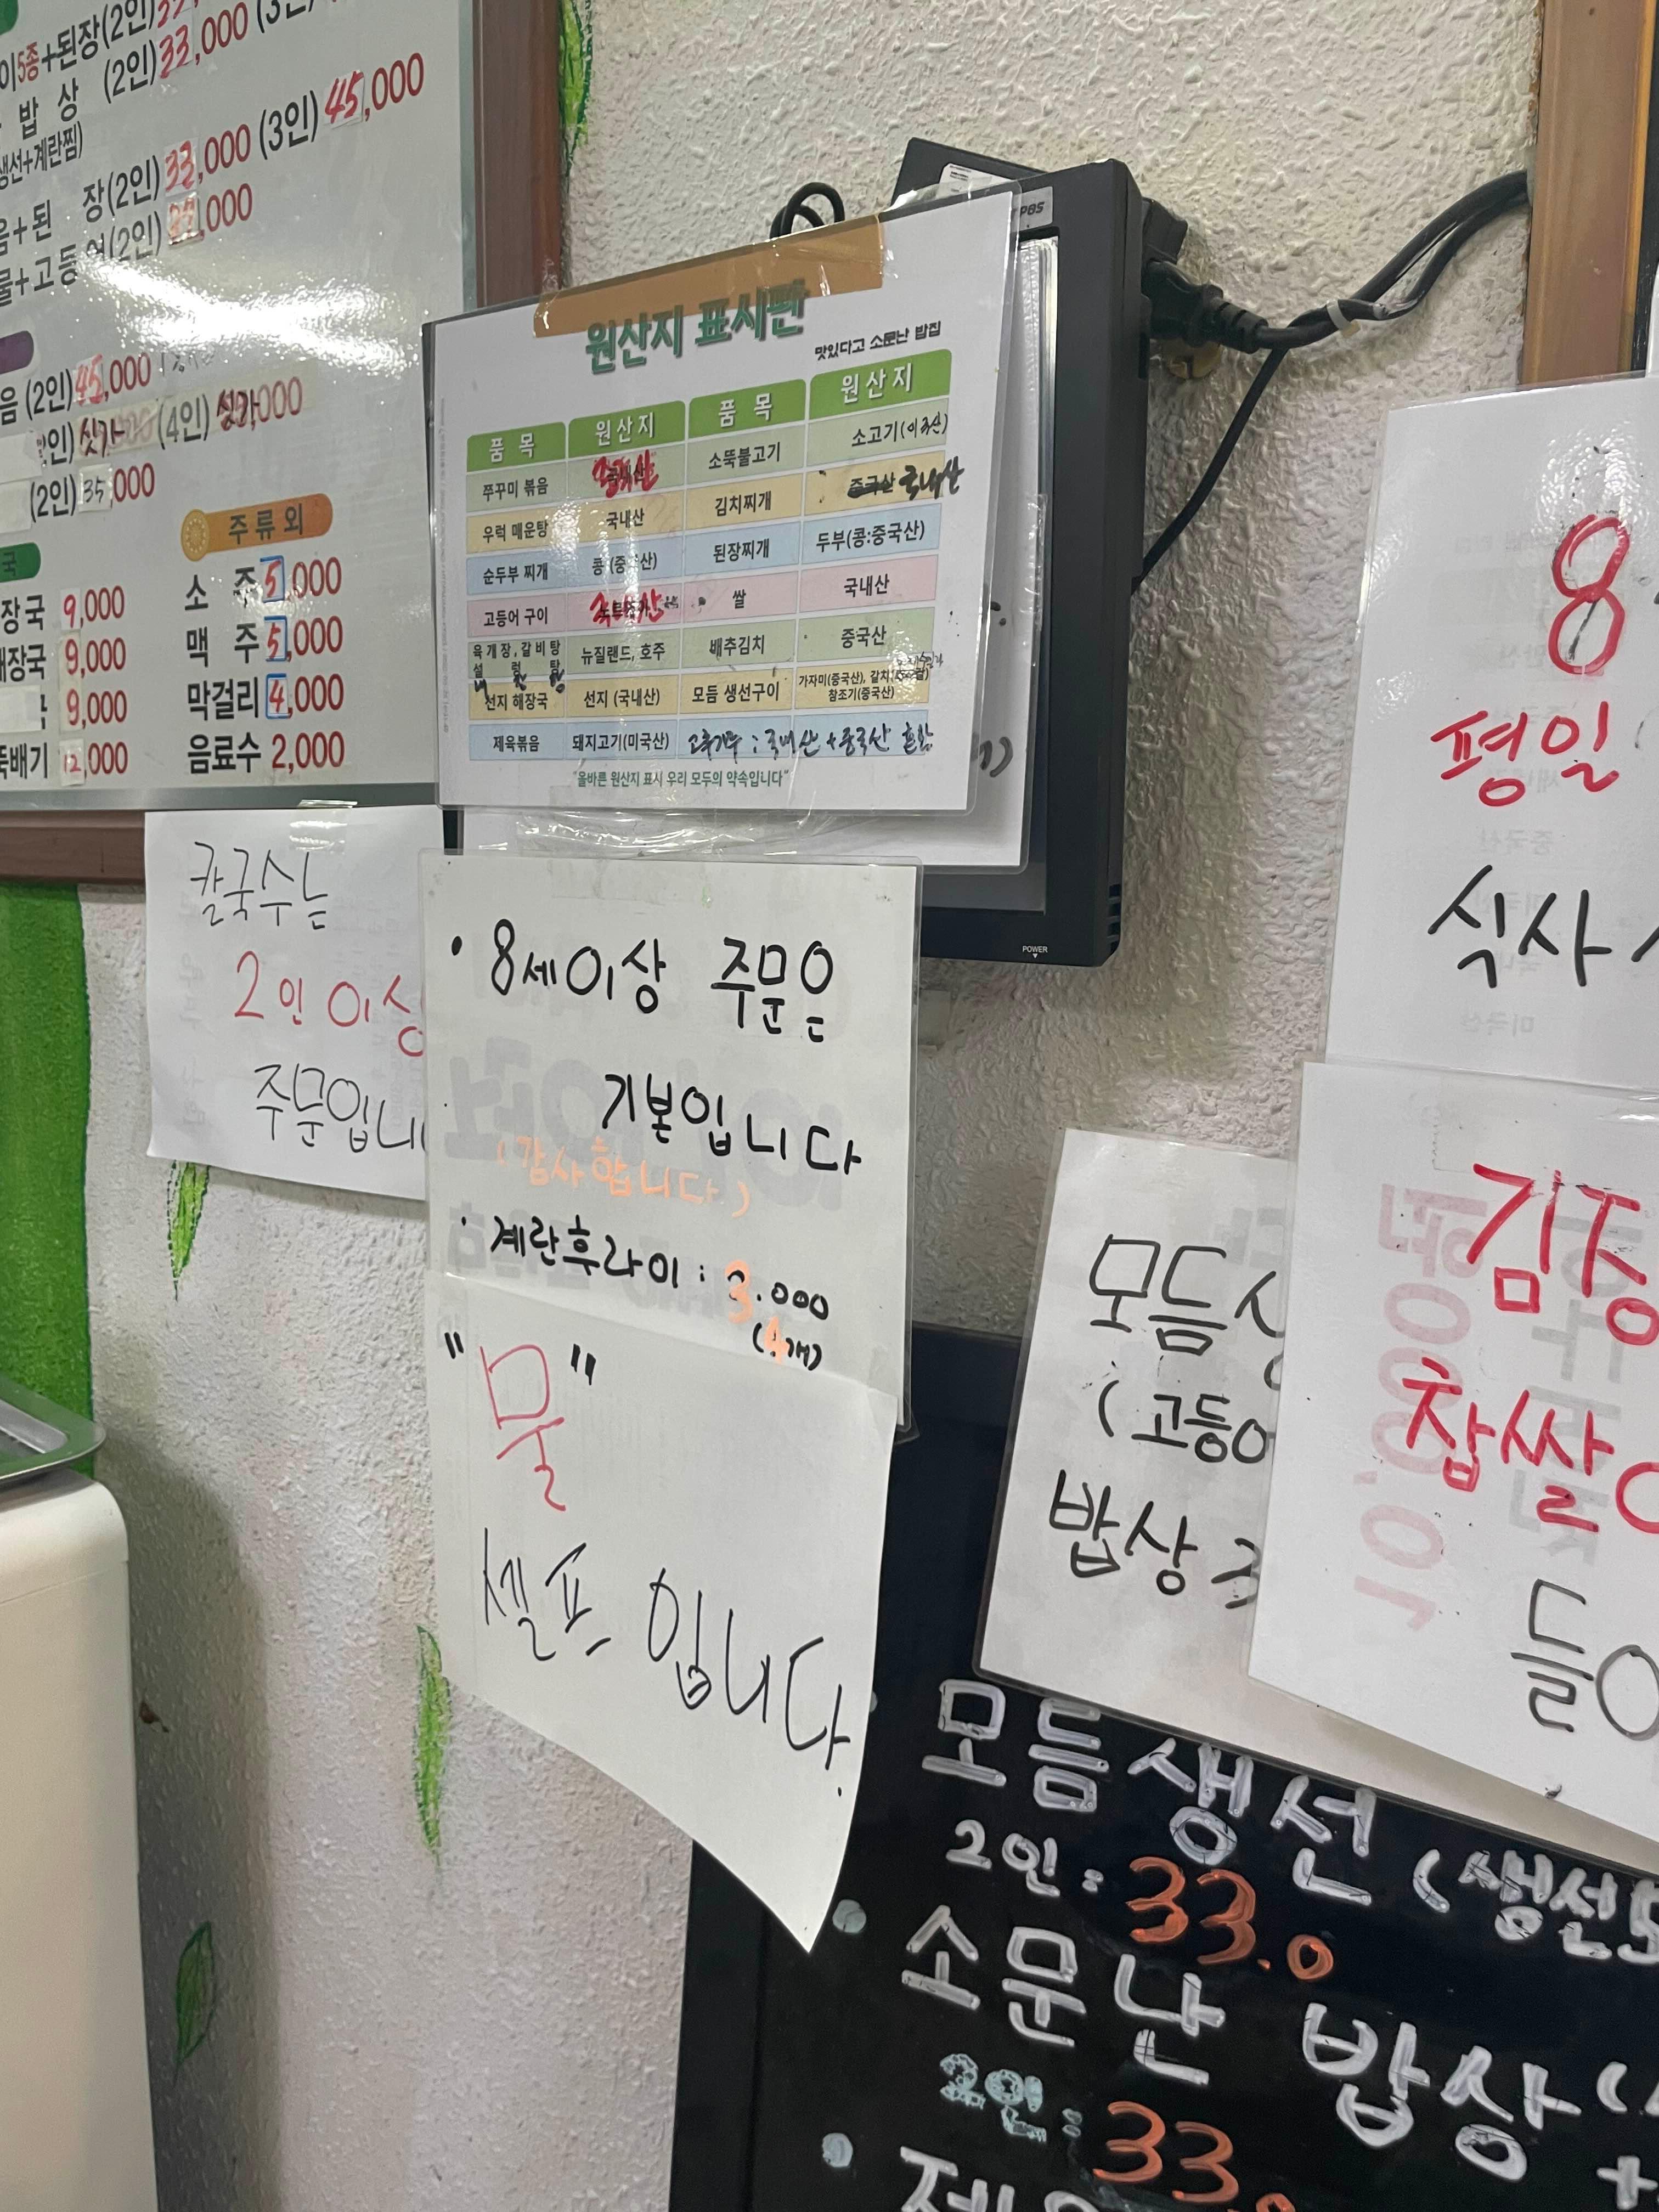 이5종+된장(2인)33
밥 상 (2인)33,000 (3인)
생선+계란찜)
음+된 장(2인)33,000 (3인)45,000
물+고등어(2인) ,000
음 (2인)45,000
인)싯가 (4인)싱가
(2인)35,000
국
장국 9,000
해장국 9,000
9,000
뚝배기 12,000
주류 외
소 주 5,000
맥 주 5,000
막걸리 4,000
음료수 2,000
원산지 표시판
맛있다고 소문난 밥집
품 목 원산지 품 목 원산지
쭈꾸미 볶음 소뚝불고기 소고기(미국산)
우럭 매운탕 국내산 김치찌개 중국산 국내산
순두부 찌개 콩(중국산) 된장찌개 두부(콩:중국산)
고등어 구이 국내산 쌀 국내산
육개장,갈비탕 뉴질랜드, 호주 배추김치 중국산
설 렁 탕
선지 해장국 선지 (국내산) 모듬 생선구이 가자미(중국산), 갈치
참조기(중국산)
제육볶음 돼지고기(미국산) 고춧가루 : 국내산 + 중국산 혼합
"올바른 원산지 표시 우리 모두의 약속입니다"
POS
POWER
칼국수는
2인 이상
주문입니
• 8세이상 주문은
기본입니다
(감사합니다.)
• 계란후라이 : 3.000
(1개)
"물"
셀프 입니다.
8
평일
식사
모듬
(고등어
밥상
김장
찹쌀
들
모듬생선 (생선5
2인 : 33.0
• 소문난 밥상 (
2인 : 33
+
• 제육